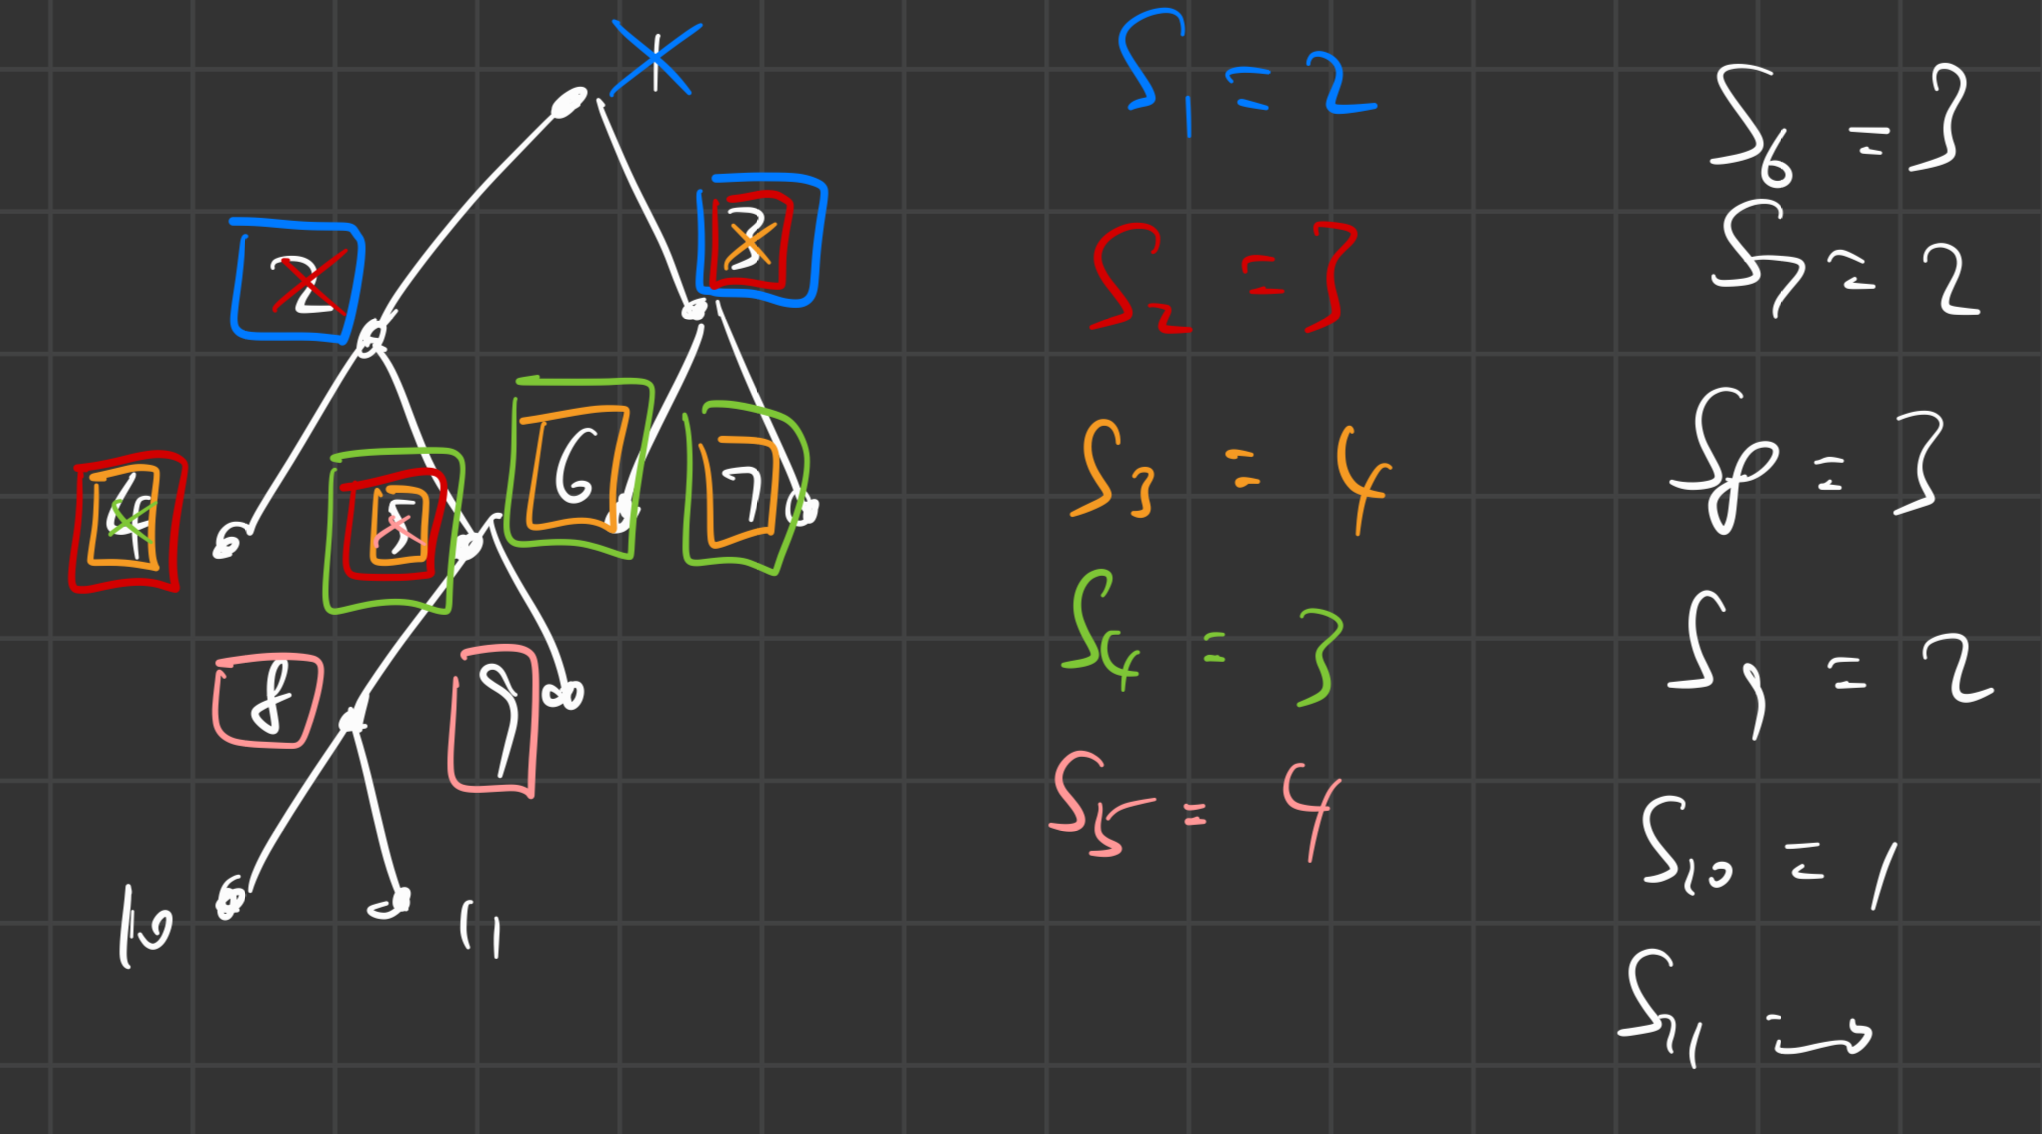 1
2
3
4
5
6
7
8
9
10
11
S₁ = 2
S₂ = 3
S₃ = 4
S₄ = 3
S₅ = 4
S₆ = 3
S₇ = 2
S₈ = 3
S₉ = 2
S₁₀ = 1
S₁₁ =